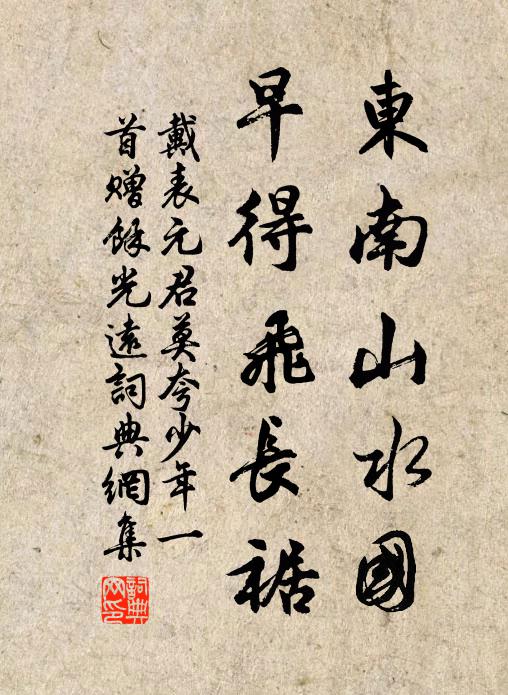 東南山水國
早得飛長裾
戴表元君莫夸少年一
首贈餘光遠詞典網集
詞典
网印